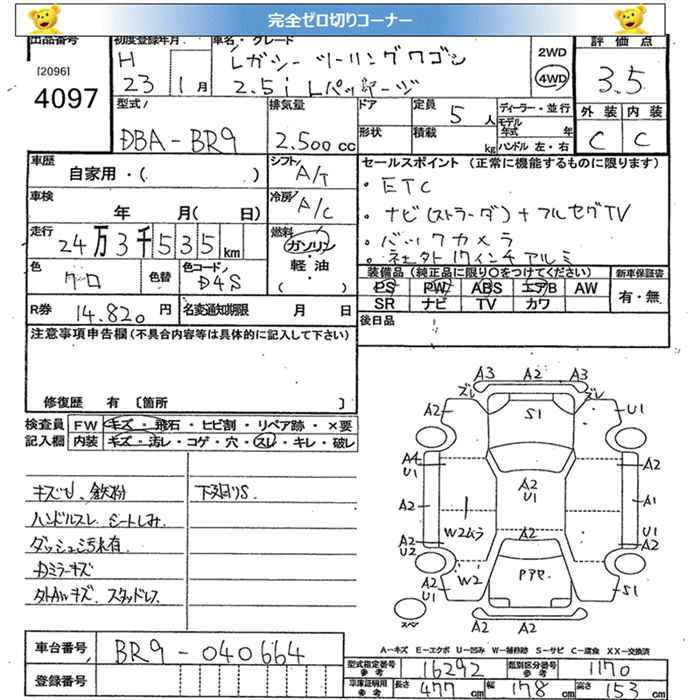 完全ゼロ切りコーナー
出品番号 初度登録年月 車名・グレード 評価点
[2096]
4097
H 23 1月
レガシー ツーリングワゴン
2.5i Lパッケージ
2WD
4WD
3.5
型式 排気量 ドア 定員 5人 ディーラー・並行 外装 内装
DBA-BR9 2.500cc
形状 積載 kg モデル年式 年 ハンドル 左・右
C C
車歴 自家用・( )
シフト A/T
セールスポイント (正常に機能するものに限ります)
・ETC
・ナビ(ストラーダ)+フルセグTV
・バックカメラ
・社外17インチアルミ
車検 年 月( 日)
冷房 A/C
走行 24万3千535km
燃料 ガソリン・軽油・( )
色 クロ 色替 色コード D4S
装備品 (純正品に限り○をつけてください) 新車保証書
PS PW ABS エアB AW
SR ナビ TV カワ
有・無
R券 14.820円 名変通知期限 月 日
後日品
注意事項申告欄(不具合内容等は具体的に記入して下さい)
修復歴 有 [箇所 ]
検査員記入欄 FW キズ・飛石・ヒビ割・リペア跡・×要
内装 キズ・汚レ・コゲ・穴・スレ・キレ・破レ
キズU、鉄粉
下廻りS.
ハンドルスレ シートしみ.
ダッシュ汚れ有
Dミラーキズ
外AWキズ. スタッドレス.
A3 A2 A3
ズレ ズレ
A2 S1 U1
A4 U1 A2
A2 U1
A2 A1
W2ムラ A2 U1 A2
A2 U2
A2 U1 W2 Pアセ S1
A2 A2
スペ
A-キズ E-エクボ U-凹み W-補修跡 S-サビ C-腐食 XX-交換済
車台番号 BR9-040664
登録番号
型式指定番号 参考 16292 類別区分番号 参考 1170
車庫証明用 参考 長さ 477cm 幅 178cm 高さ 153cm